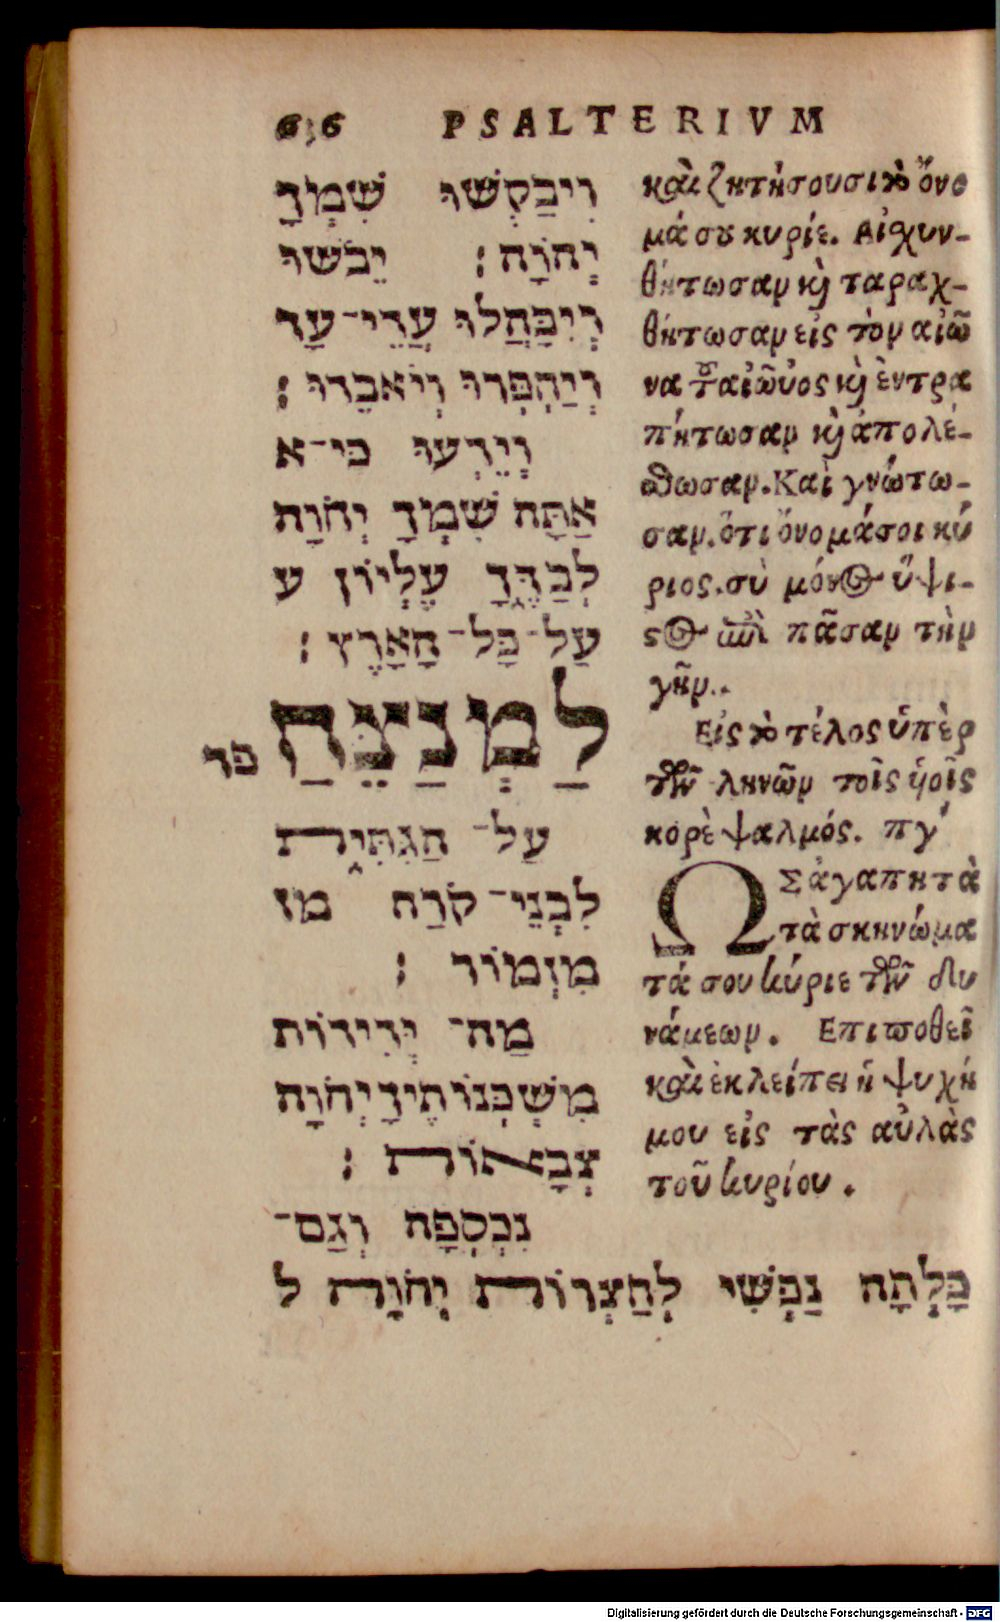 6 6 PSALTERIVM
וִיבַקְשׁוּ שִׁמְךָ
יְהוָה׃ יֵבֹשׁוּ
וְיִבָּהֲלוּ עֲדֵי־עַד
וְיַחְפְּרוּ וְיֹאבֵדוּ׃
וְיֵדְעוּ כִּי־א
אַתָּה שִׁמְךָ יְהֹוָה
לְבַדֶּךָ עֶלְיוֹן ע
עַל־כָּל־הָאָרֶץ׃
לַמְנַצֵּחַ
פד
עַל־הַגִּתִּית
לִבְנֵי־קֹרַח מז
מִזְמוֹר׃
מַה־יְּדִידוֹת
מִשְׁכְּנוֹתֶיךָ יְהֹוָה
צְבָאוֹת׃
נִכְסְפָה וְגַם־
כָּלְתָה נַפְשִׁי לְחַצְרוֹת יְהֹוָה ל
καὶ ζητήσουσι τὸ ὄνο
μά σου κυρίε. Αἰσχυν-
θήτωσαν καὶ ταραχ-
θήτωσαν εἰς τὸν αἰῶ
να τοῦ αἰῶνος καὶ ἐντρα
πήτωσαν καὶ ἀπολέ-
σθωσαν. Καὶ γνώτω-
σαν. ὅτι ὄνομά σοι κύ
ριος. σὺ μόνος ὕψι-
στος ἐπὶ πᾶσαν τὴν
γῆν.
Εἰς τὸ τέλος ὑπὲρ
τῶν ληνῶν τοῖς υἱοῖς
κορὲ ψαλμός. πγʹ
ΩΣ ἀγαπητὰ
τὰ σκηνώμα
τά σου κύριε τῶν δυ
νάμεων. Επιποθεῖ
καὶ ἐκλείπει ἡ ψυχή
μου εἰς τὰς αὐλὰς
τοῦ κυρίου.
Digitalisierung gefördert durch die Deutsche Forschungsgemeinschaft - DFG